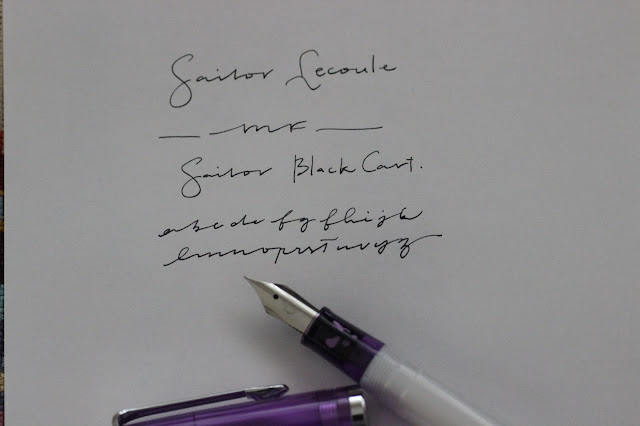 Sailor Lecoule
— MF —
Sailor Black Cart.
abcde fg fhijk
lmnnoprrstuvyz